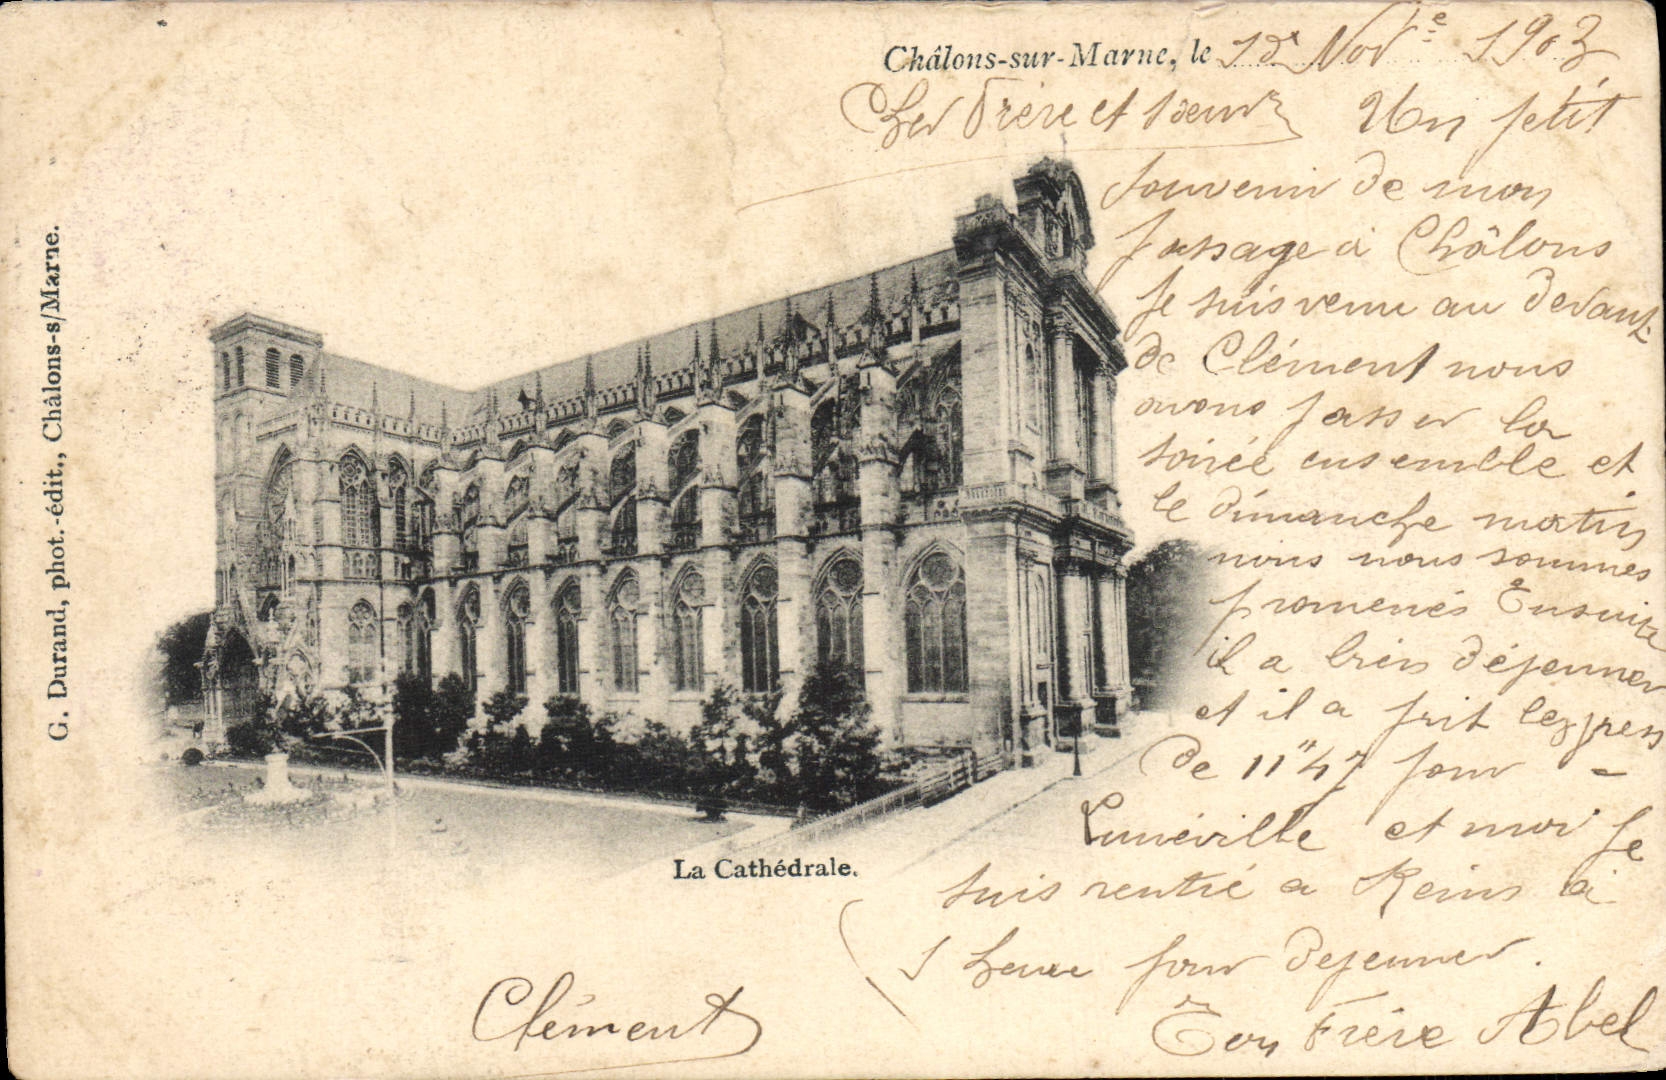 Châlons-sur-Marne, le 1er Nov.e 1903
Cher Frère et Sœur Un petit
souvenir de mon
passage à Châlons
Je suis venu au devant
de Clément nous
avons passer la
soirée ensemble et
le dimanche matin
nous nous sommes
promenés Ensuite
il a bien déjeuner
et il a prit l'express
de 11"47 pour
Lunéville et moi je
suis rentré a Reims à
1 heure pour dejeuner.
Ton Frére Abel
Clément
La Cathédrale.
G. Durand, phot.-édit., Châlons-s/Marne.